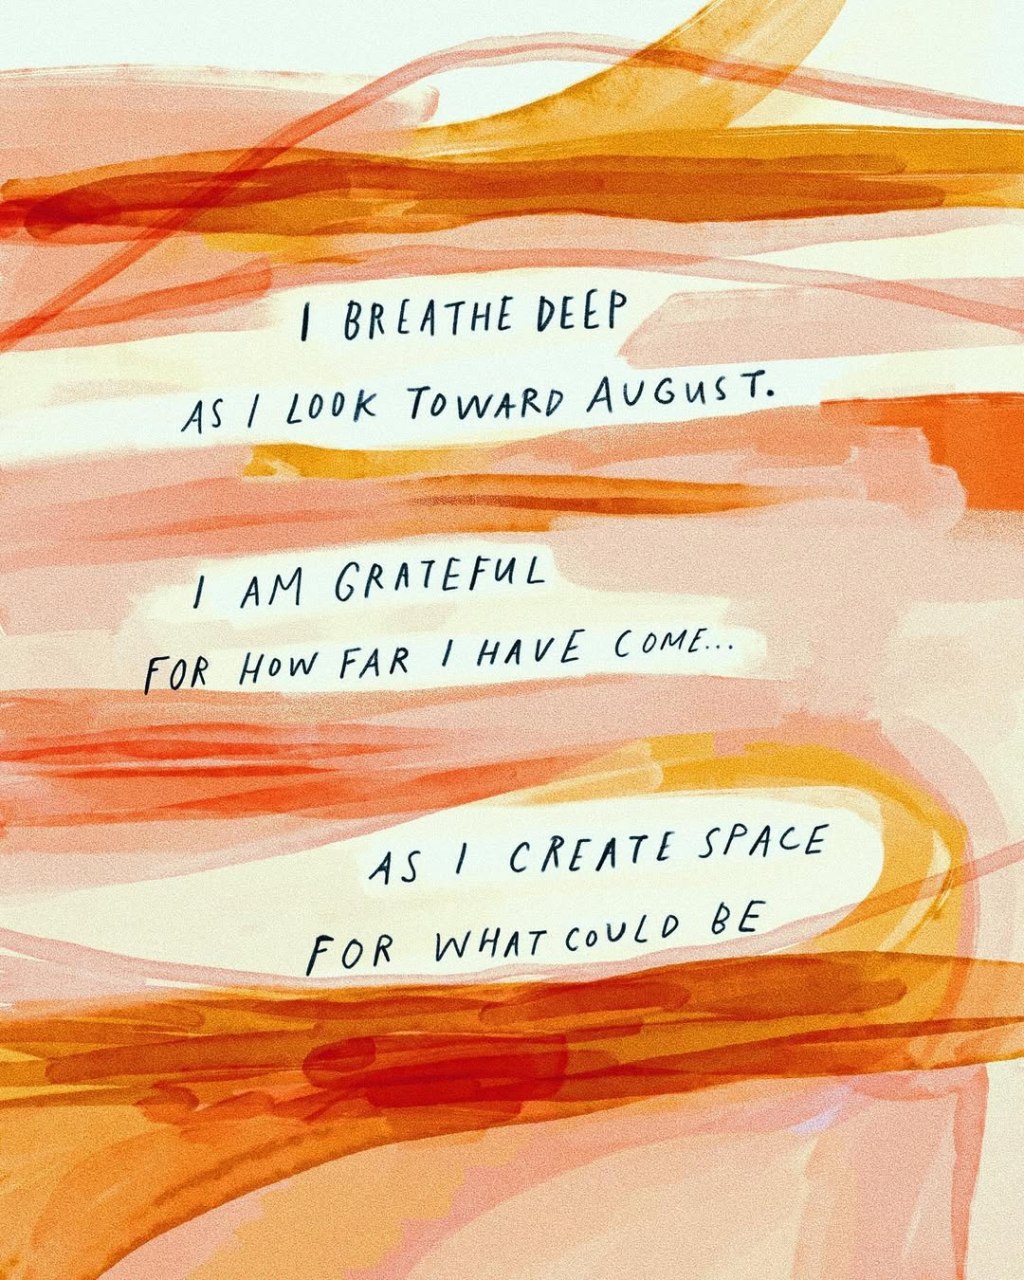 I BREATHE DEEP
AS I LOOK TOWARD AUGUST.
I AM GRATEFUL
FOR HOW FAR I HAVE COME...
AS I CREATE SPACE
FOR WHAT COULD BE